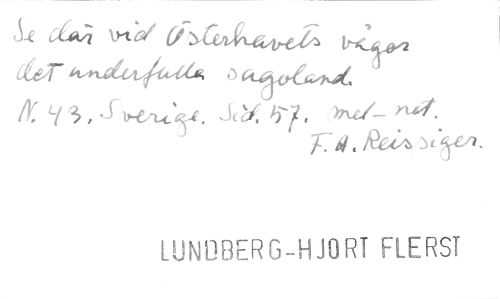 Se där vid Österhavets vågor
det underfulla sagoland.
N. 43. Sverige. Sid. 57. mel-not.
F. A. Reissiger.
LUNDBERG-HJORT FLERST